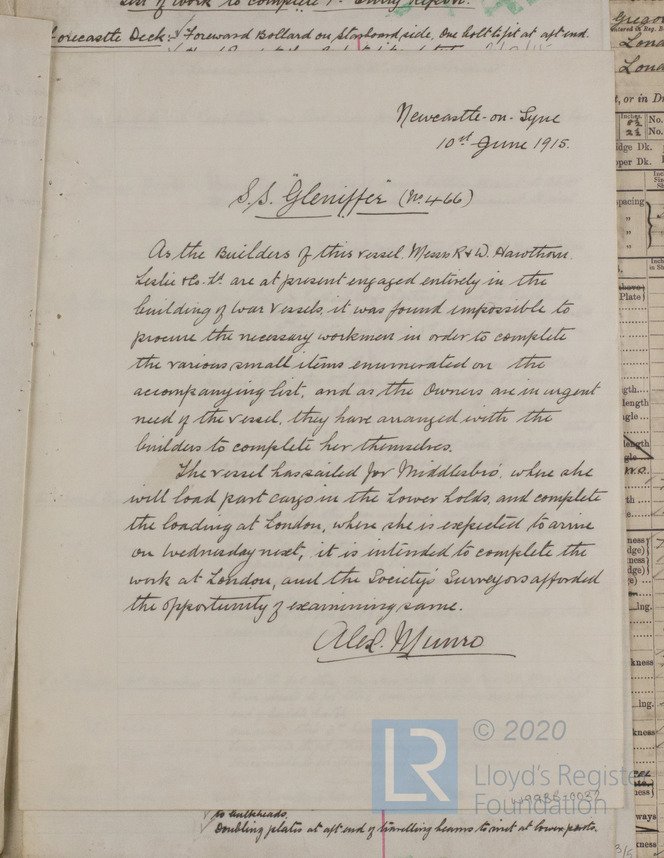 List of work to complete 1st Entry Report.
Forecastle Deck:- Foreward Bollard on Starboard side, One bolt to fit at aft end.
Newcastle-on-Tyne
10st June 1915.
S.S. "Gleniffer" (No 466)
As the Builders of this vessel, Messrs R & W. Hawthorn,
Leslie & Co. Ld are at present engaged entirely in the
building of war vessels, it was found impossible to
procure the necessary workmen in order to complete
the various small items enumerated on the
accompanying list, and as the Owners are in urgent
need of the vessel, they have arranged with the
builders to complete her themselves.
The vessel has sailed for Middlesbro', where she
will load part cargo in the Lower Holds, and complete
the loading at London, where she is expected to arrive
on Wednesday next, it is intended to complete the
work at London, and the Society's Surveyors afforded
the opportunity of examining same.
Alex. Munro
LR © 2020
Lloyd's Registe
Foundation
W986-0037
to bulkheads.
Doubling plates at aft end of travelling beams to rivet at lower parts.
Gregor
Lond
Lond
, or in D
Inches.
No.
No.
idge Dk.
per Dk.
spacing
"
"
"
Plate)
gth...
length
gle...
length
gle
th ...
ness
dge)
ness
dge)
ing.
kness
ing.
kness
ness
ways
kness